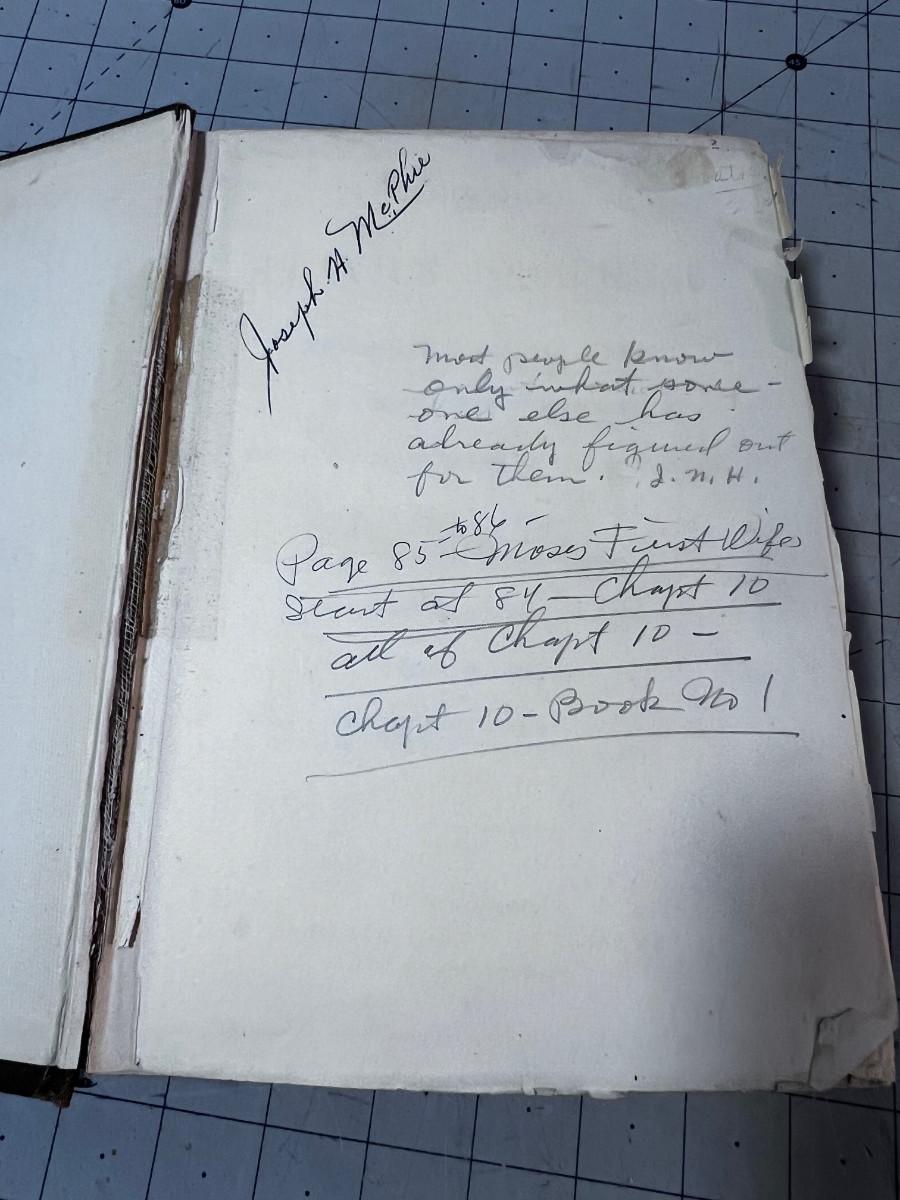 Joseph. H. McPhie
Most people know
only what some-
one else has
already figured out
for them. J. N. H.
to 86 -
Page 85 - Moses First Wife
Start at 84 - Chapt 10
all of Chapt 10 -
Chapt 10 - Book No 1